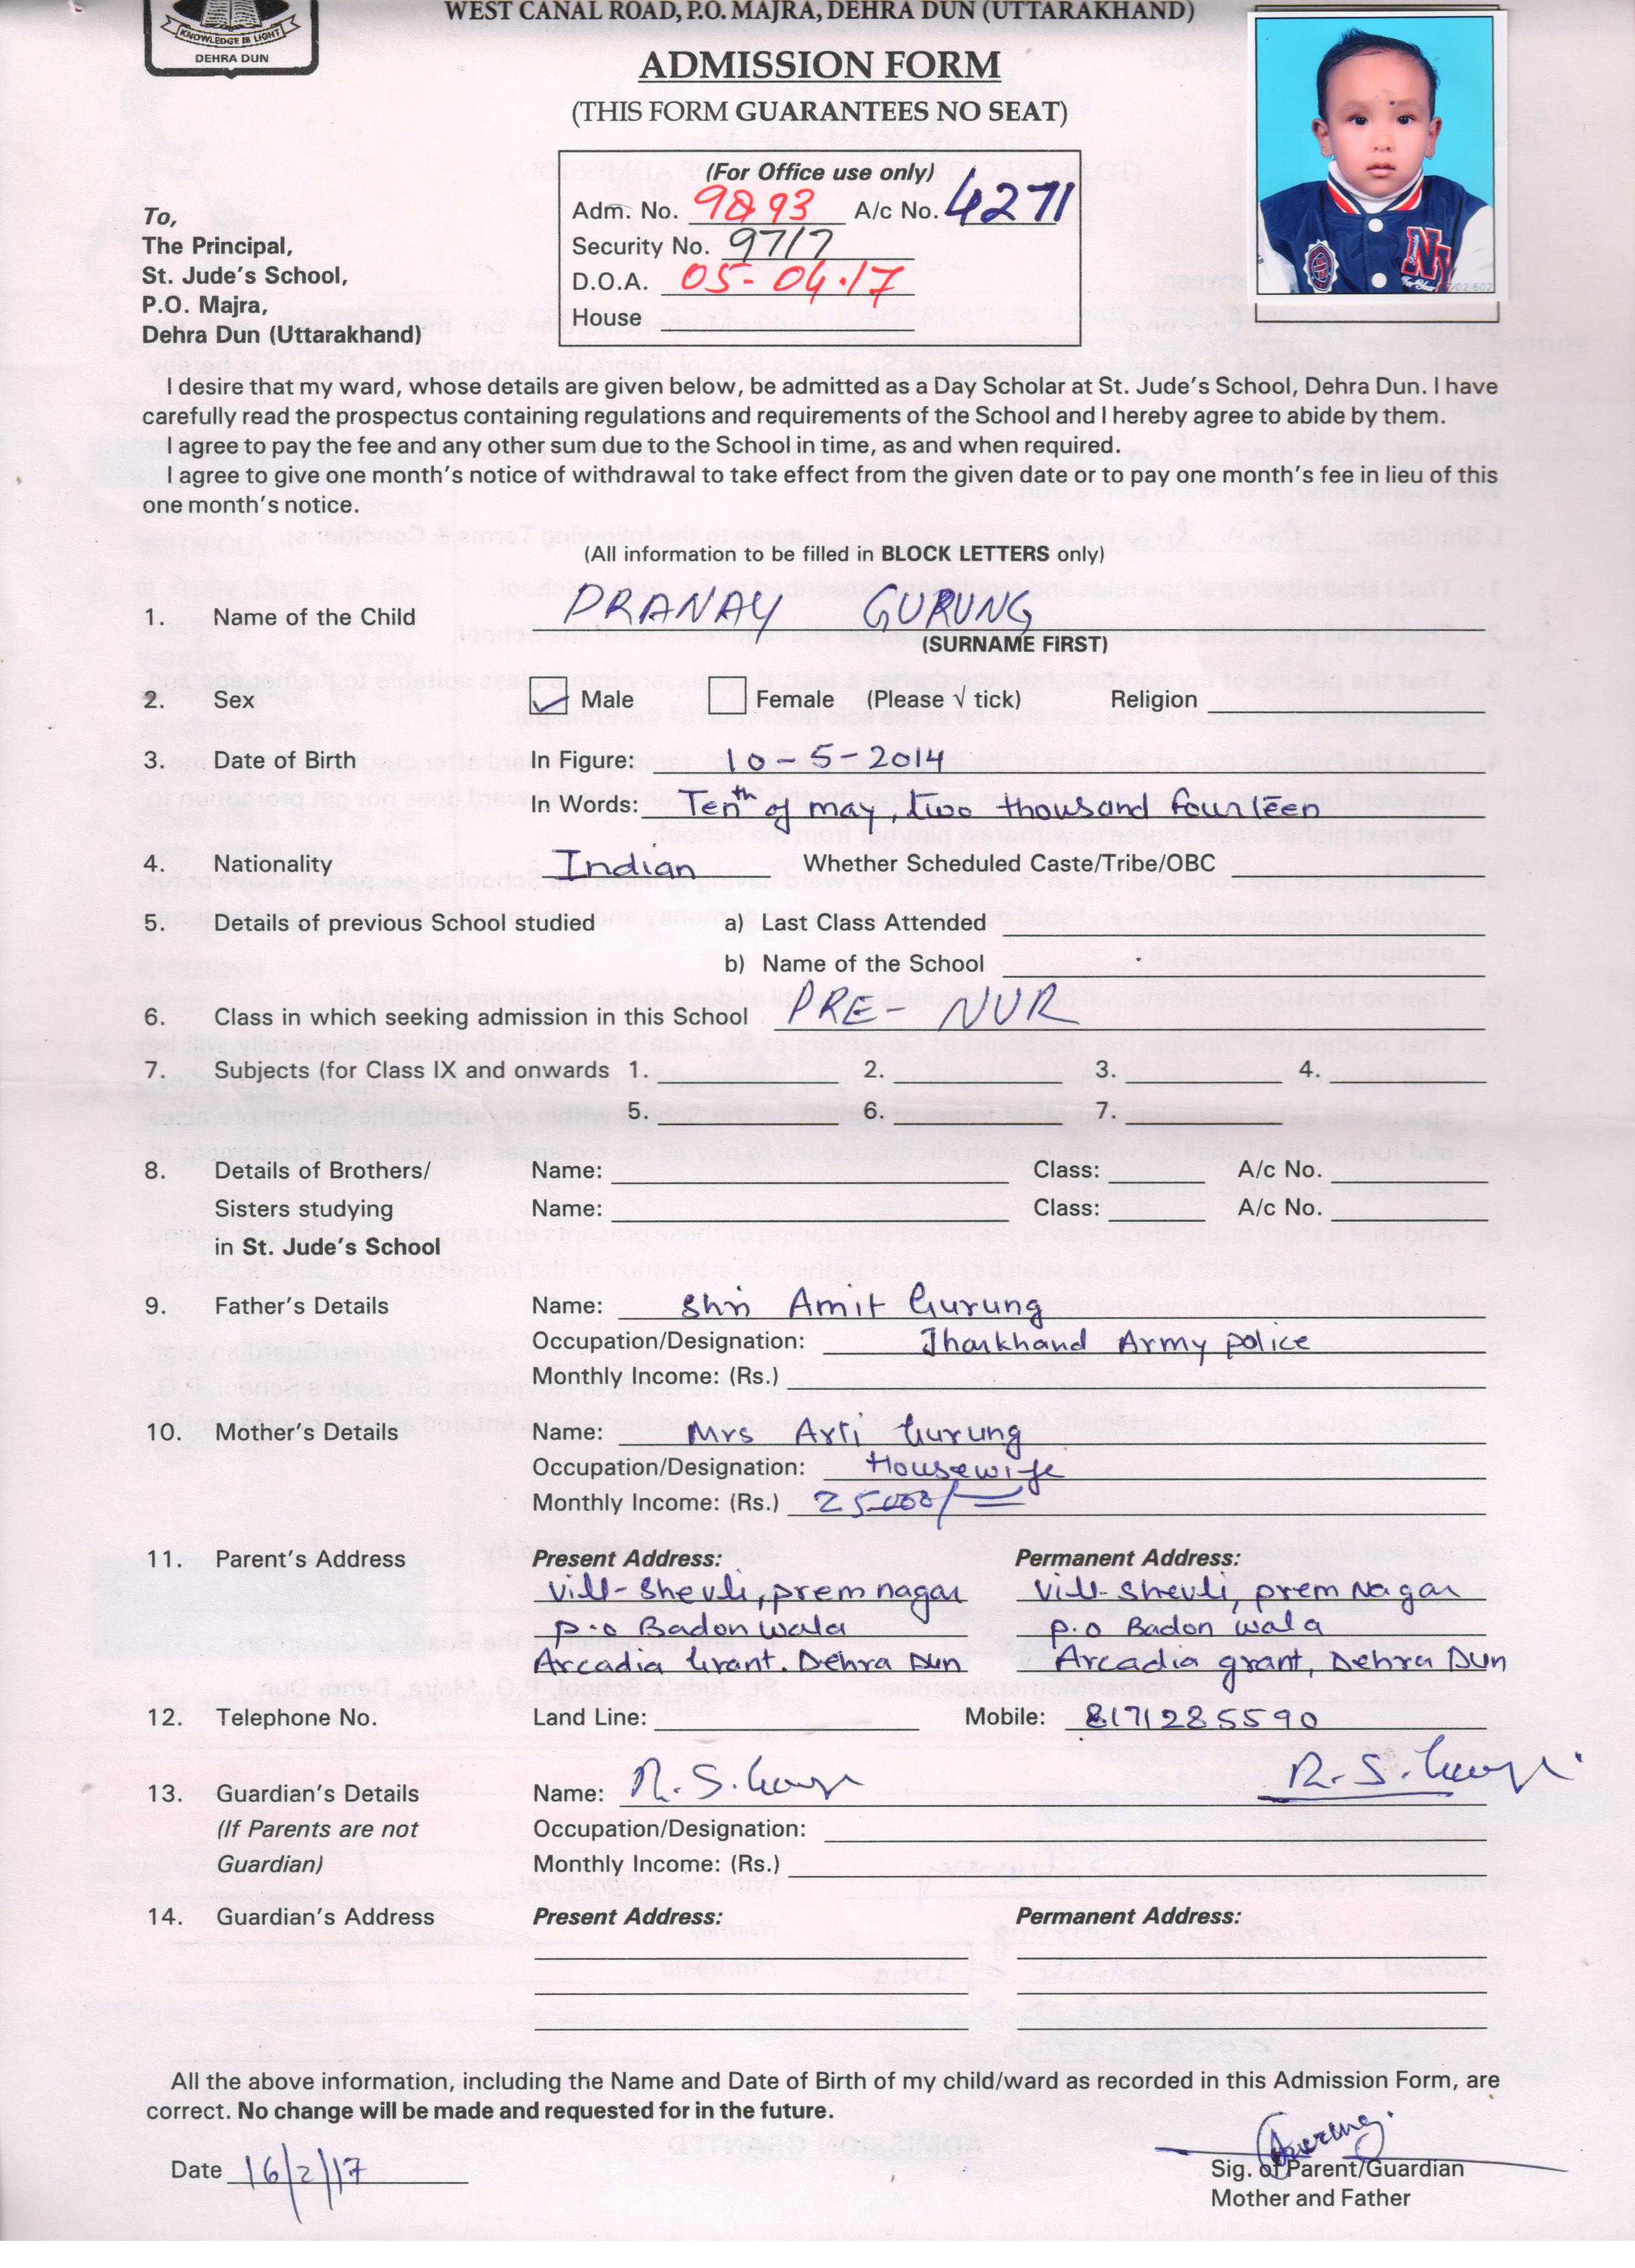 WEST CANAL ROAD, P.O. MAJRA, DEHRA DUN (UTTARAKHAND)
KNOWLEDGE IS LIGHT
DEHRA DUN
ADMISSION FORM
(THIS FORM GUARANTEES NO SEAT)
(For Office use only)
Adm. No. 9893 A/c No. 4271
Security No. 9717
D.O.A. 05-04-17
House
To,
The Principal,
St. Jude's School,
P.O. Majra,
Dehra Dun (Uttarakhand)
I desire that my ward, whose details are given below, be admitted as a Day Scholar at St. Jude's School, Dehra Dun. I have
carefully read the prospectus containing regulations and requirements of the School and I hereby agree to abide by them.
I agree to pay the fee and any other sum due to the School in time, as and when required.
I agree to give one month's notice of withdrawal to take effect from the given date or to pay one month's fee in lieu of this
one month's notice.
(All information to be filled in BLOCK LETTERS only)
1. Name of the Child PRANAY GURUNG
(SURNAME FIRST)
2. Sex Male Female (Please √ tick) Religion
3. Date of Birth In Figure: 10-5-2014
In Words: Tenth of may, two thousand fourteen
4. Nationality Indian Whether Scheduled Caste/Tribe/OBC
5. Details of previous School studied a) Last Class Attended
b) Name of the School
6. Class in which seeking admission in this School PRE- NUR
7. Subjects (for Class IX and onwards 1. 2. 3. 4.
5. 6. 7.
8. Details of Brothers/ Name: Class: A/c No.
Sisters studying Name: Class: A/c No.
in St. Jude's School
9. Father's Details Name: Shri Amit Gurung
Occupation/Designation: Jharkhand Army police
Monthly Income: (Rs.)
10. Mother's Details Name: Mrs Arti Gurung
Occupation/Designation: Housewife
Monthly Income: (Rs.) 25000/=
11. Parent's Address Present Address: Permanent Address:
Vill-Shevli, prem nagar Vill-Shevli, prem Nagar
p.o Badonwala p.o Badon wala
Arcadia Grant. Dehra Dun Arcadia grant, Dehra Dun
12. Telephone No. Land Line: Mobile: 8171285590
13. Guardian's Details Name: R.S. R.S.
(If Parents are not Occupation/Designation:
Guardian) Monthly Income: (Rs.)
14. Guardian's Address Present Address: Permanent Address:
All the above information, including the Name and Date of Birth of my child/ward as recorded in this Admission Form, are
correct. No change will be made and requested for in the future.
Date 16/2/17
Sig. of Parent/Guardian
Mother and Father